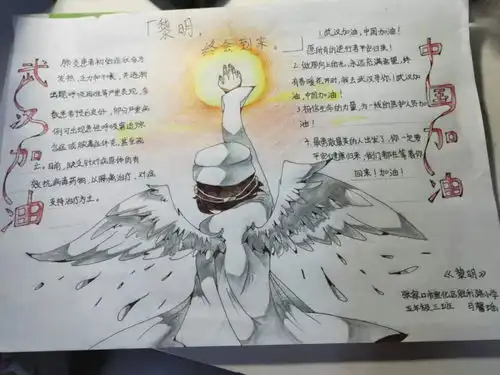 「黎明，
终会到来。」
武汉加油
肺炎患者初的症状会有
发热、乏力和干咳，并逐渐
出现呼吸困难等严重表现。多
数患者预后良好，部分严重病
例可出现急性呼吸窘迫综
合症或脓毒症休克，甚至死
亡。目前，缺乏针对病原体的有
效抗病毒药物，以隔离治疗、对症
支持治疗为主。
1.武汉加油，中国加油！
愿所有的逆行者平安归来！
2.做那向上的光，永远充满希望，终
有春暖花开时，我去武汉等你！武汉加
油，中国加油！
3.相信生命的力量，为一线的医护人员加
油！
4.最勇敢最美的人出发了，你一定要
平安健康归来，我们都在等着你
回来！加油！
中国加油
《黎明》
张家口市宣化区胜利路小学
五年级三班 马馨瑶